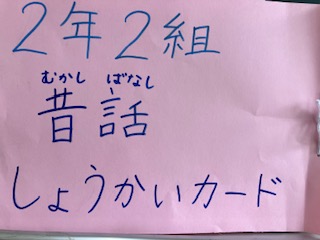 2年2組
むかし ばなし
昔話
しょうかいカード